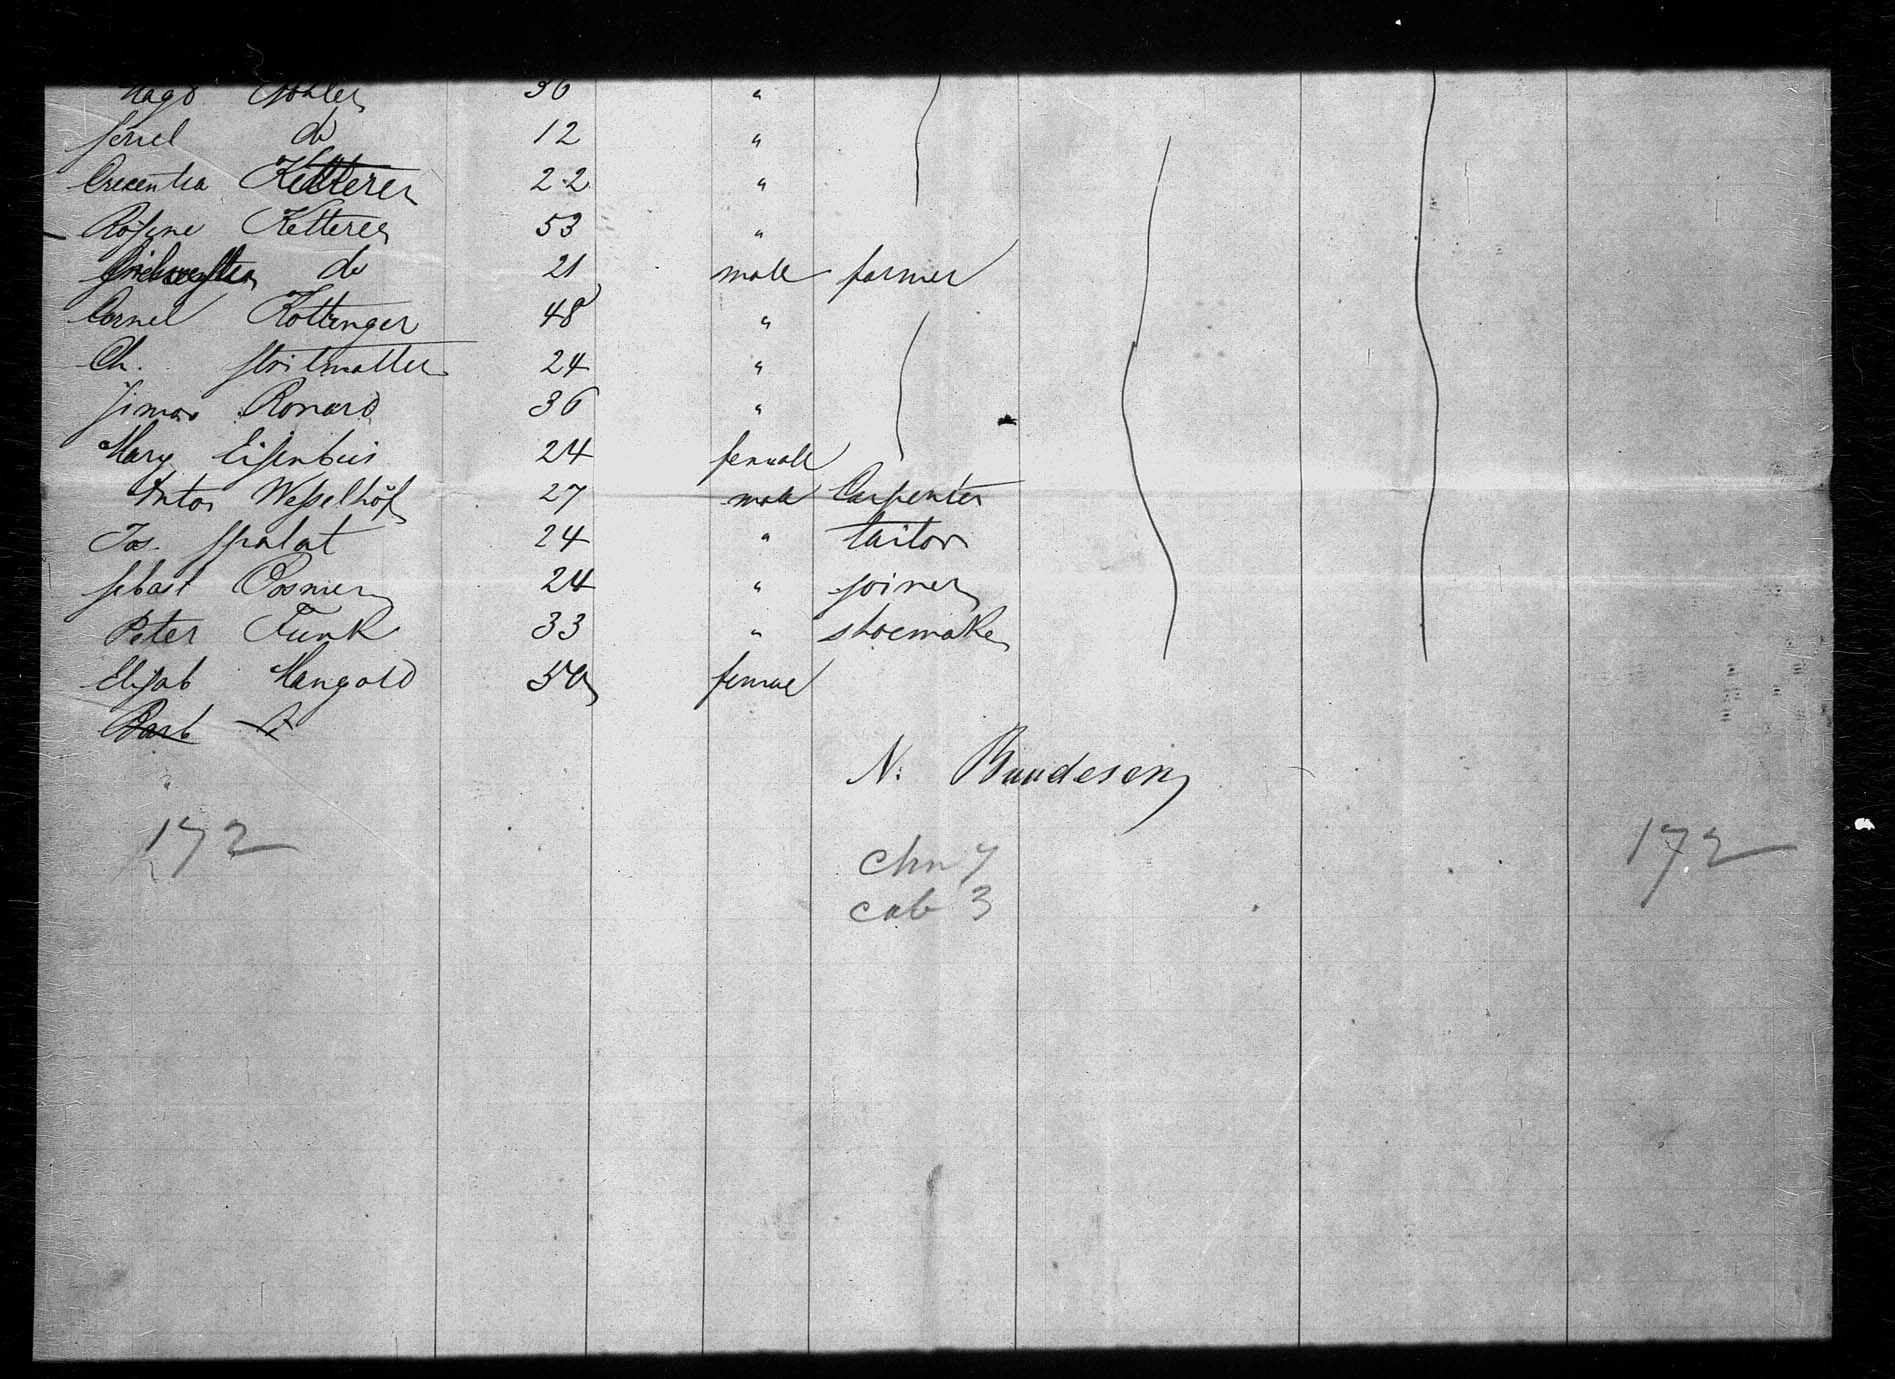 Magd Köhler 36 "
do 12 "
Crecentia Ketterer 22 "
Rosine Ketterer 53 "
do 21 male farmer
Cornel Kottinger 48 "
Ch. Stritmatter 24 "
Simas Ronard 36 "
Mary Eisenbeis 24 female
Anton Wesselhöf 27 male Carpenter
Jos. Spalat 24 " tailor
Sebast Posmer 24 " joiner
Peter Funk 33 " shoemaker
Elisab Mangold 50 female
Barb
N. Bundesen
172 172
chn 7
cab 3